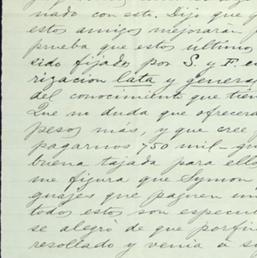 nado con este. Dijo que q
estos amigos mejoraran
prueba que estos ultimo
sido fijado por S y F. en
rizacion lata y genera
del conocimiento que tien
Que no duda que ofrecera
pesos más, y que cree
pagarnos 750 mil-
buena tajada para ello
me figura que Symon
que paguen un
todos estos son especu
se alegró de que porfi
resollado y venia a s